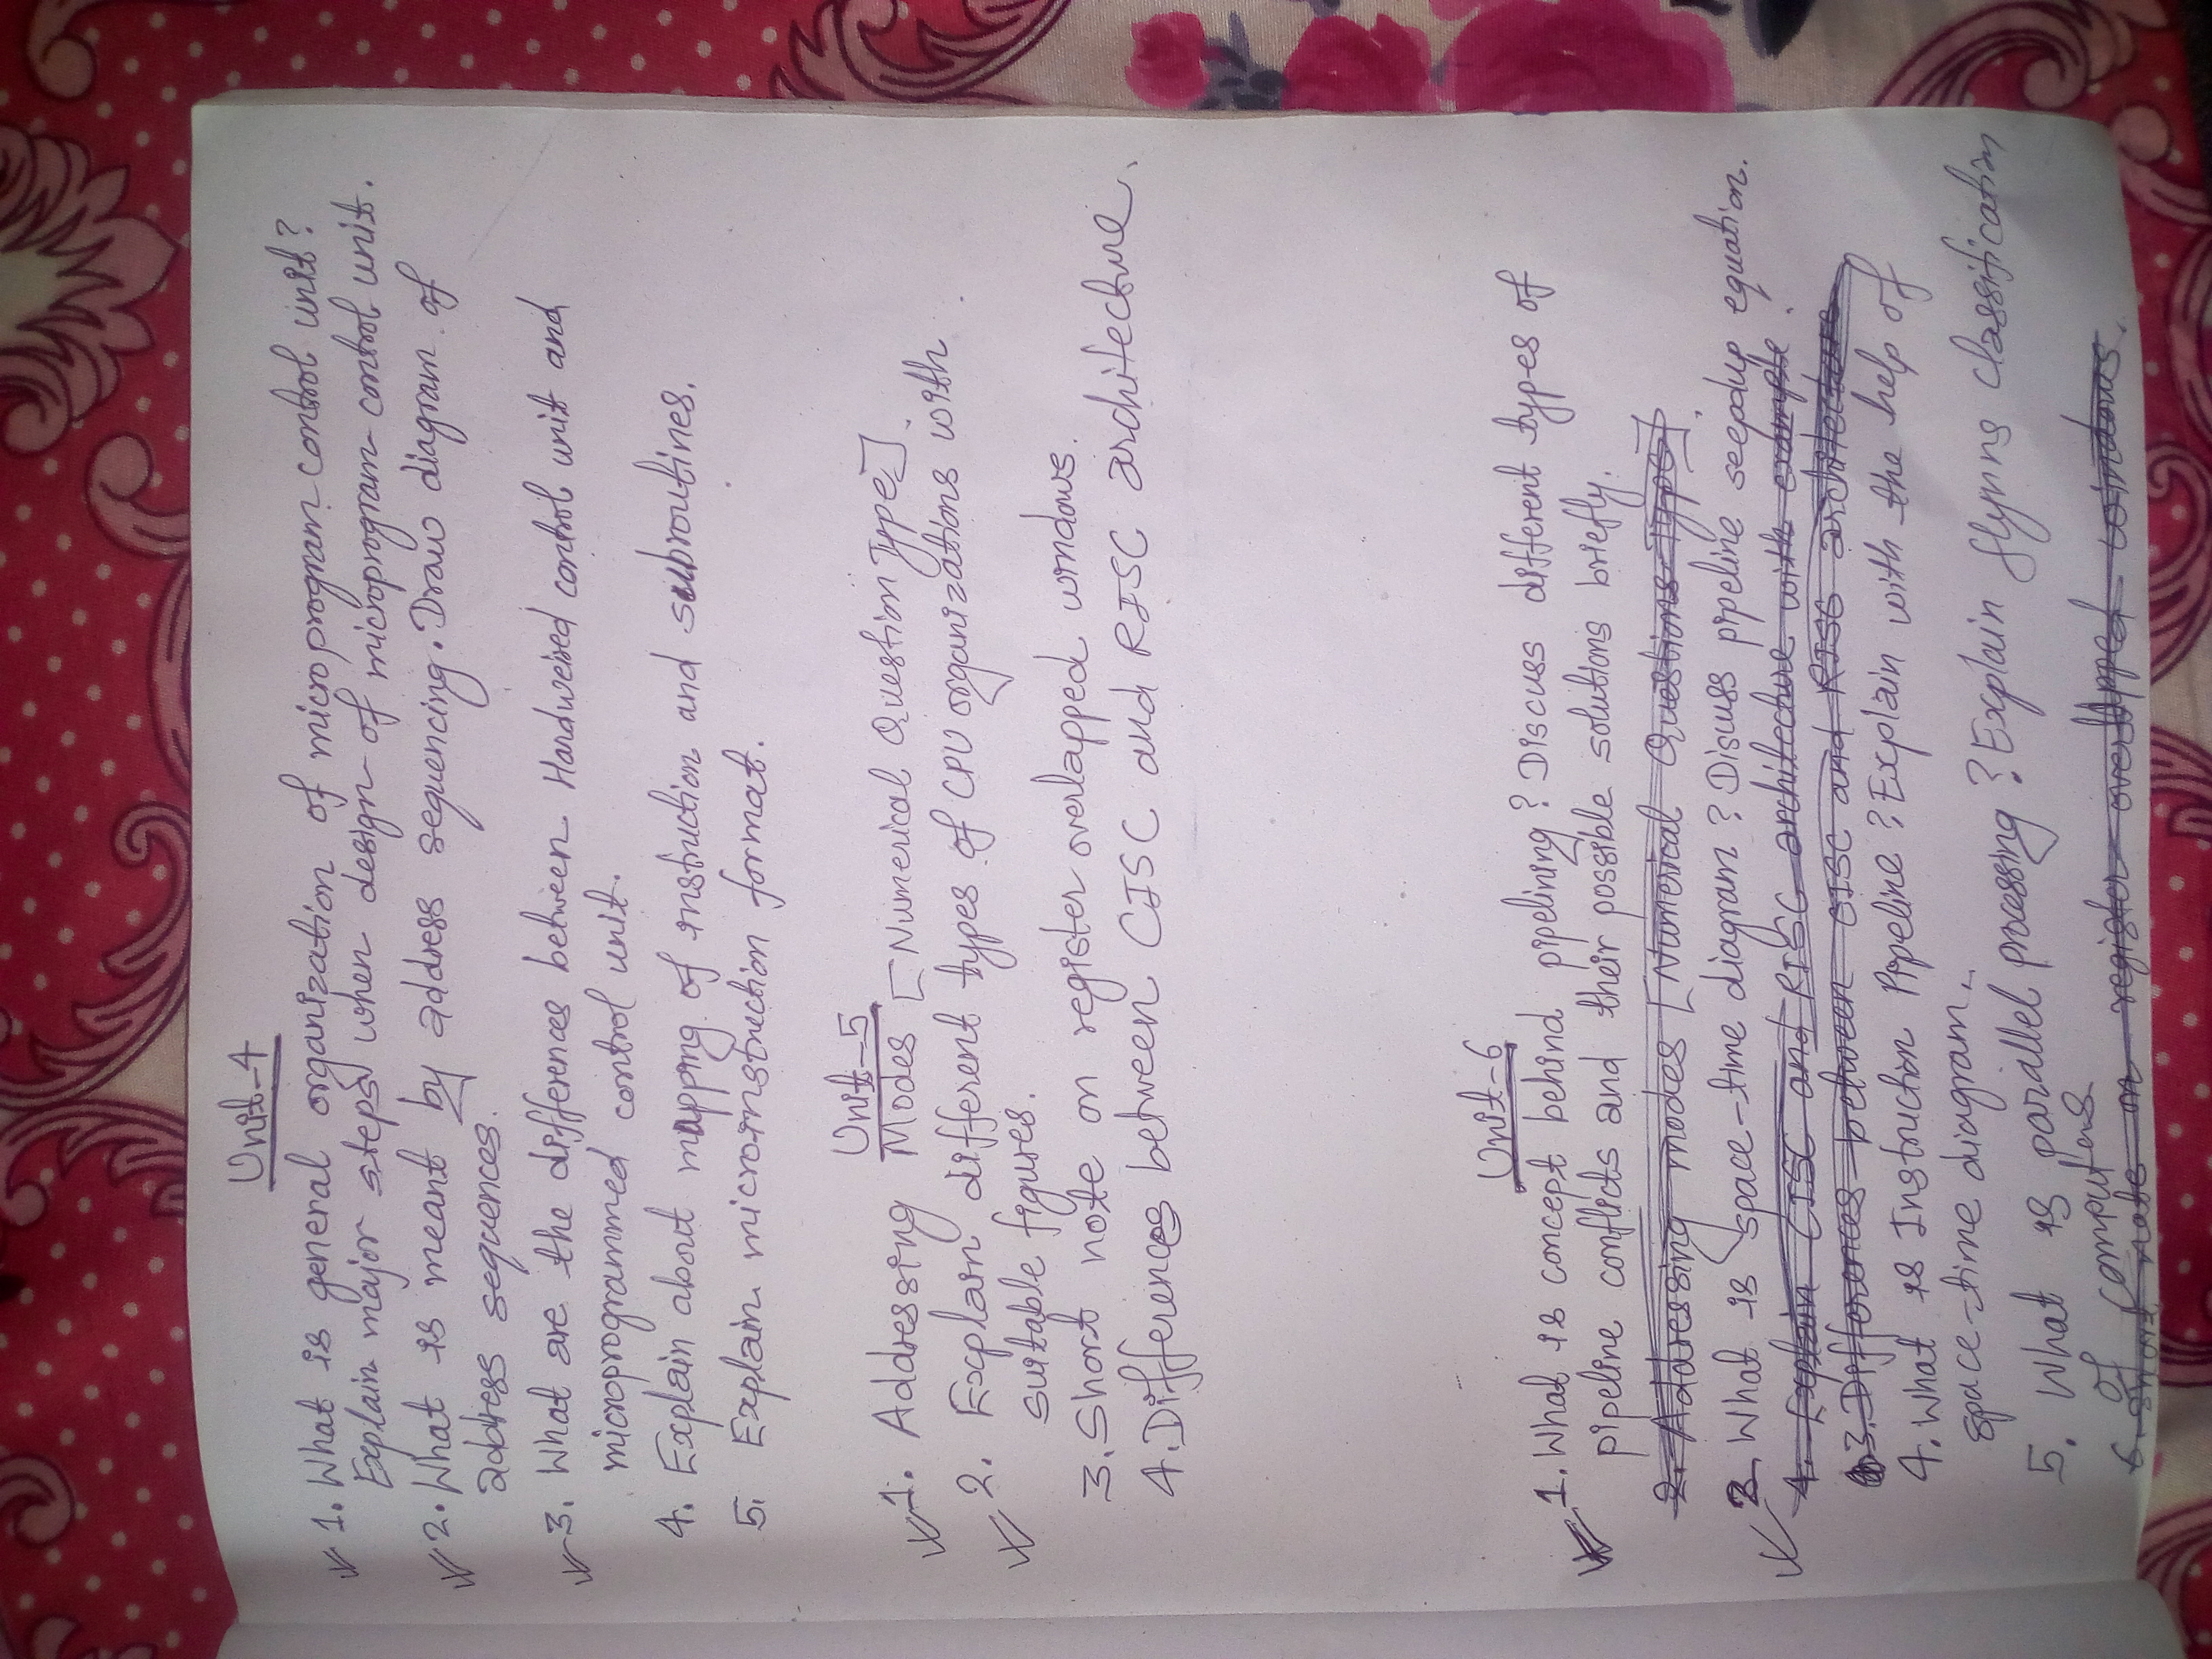 Unit-4
1. What is general organization of microprogram control unit?
Explain major steps when design of microprogram control unit.
2. What is meant by address sequencing. Draw diagram of
address sequences.
3. What are the differences between Hardweired control unit and
microprogrammed control unit.
4. Explain about mapping of instruction and subroutines.
5. Explain microinstruction format.
Unit-5
1. Addressing Modes [Numerical Question Type].
2. Explain different types of CPU organizations with
suitable figures.
3. Short note on register overlapped windows.
4. Differences between CISC and RISC architecture.
Unit-6
1. What is concept behind pipelining? Discuss different types of
pipeline conflicts and their possible solutions briefly.
2. Addressing modes [Numerical Questions Type].
2. What is space-time diagram? Disuss pipeline seepdup equation.
4. Explain CISC and RISC architecture with example.
3. Differences between CISC and RISC architecture
4. What is Instruction Pipeline? Explain with the help of
space-time diagram.
5. What is parallel processing? Explain flynns classification
of computers
6. Short note on register overlapped windows.